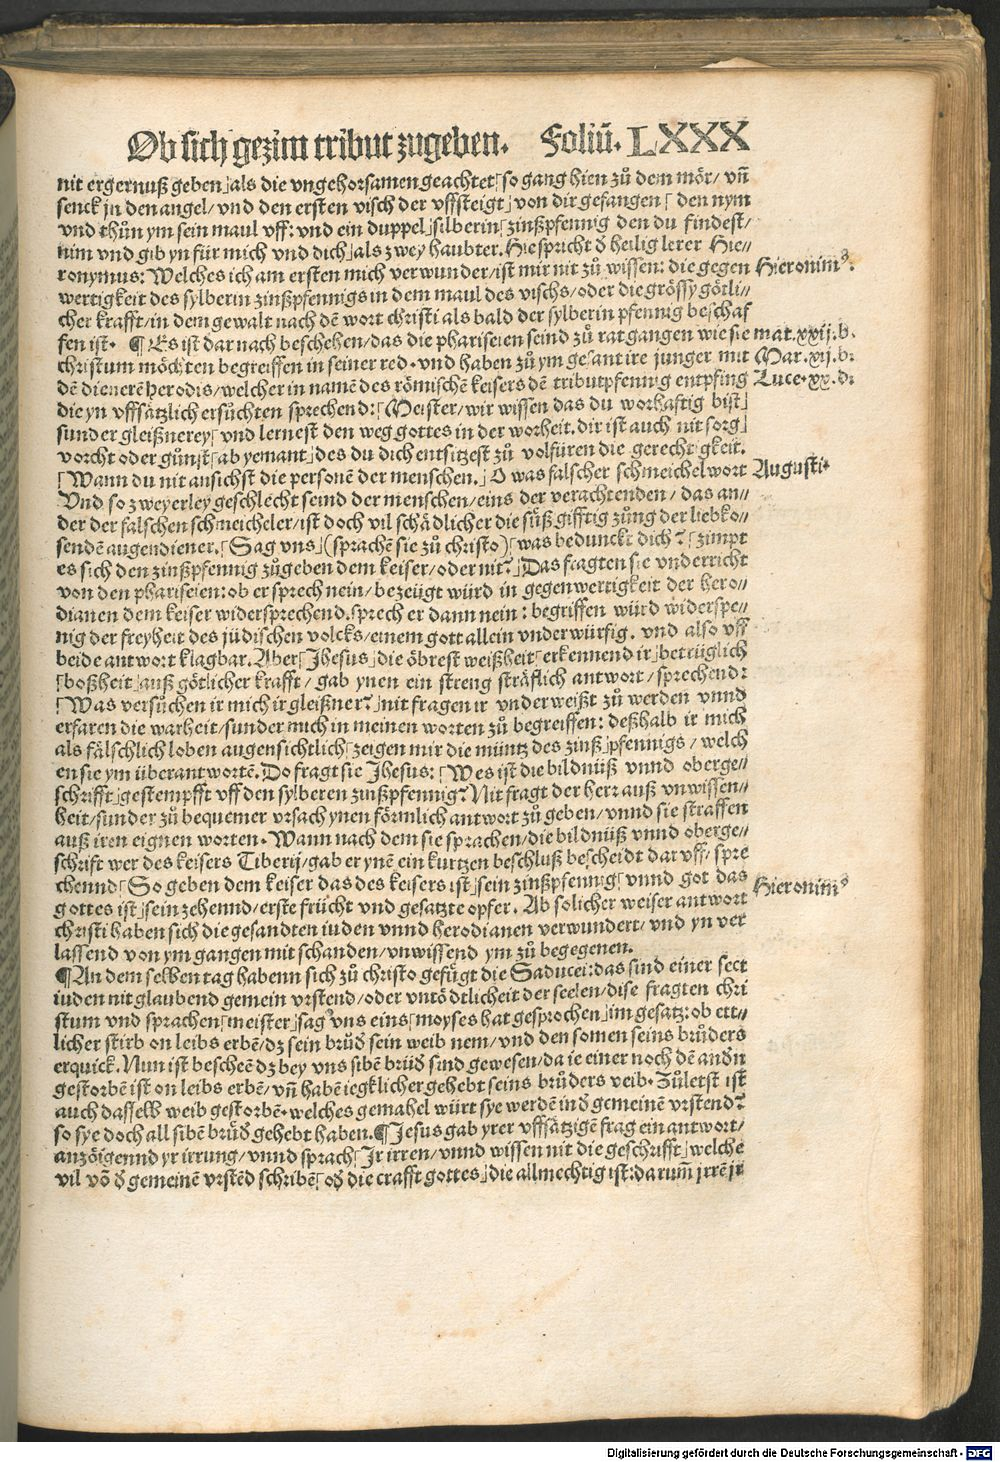 Ob sich gezim tribut zugeben. Foliū. LXXX
nit ergernuß geben⌋als die vngehorsamen geachtet⌈so gang hien zů dem mör/ vñ
senck jn den angel/ vnd den ersten visch der vffsteigt⌋von dir gefangen⌈den nym
vnd thůn ym sein maul vff: vnd ein duppel⌋silberin⌈zinßpfennig den du findest/
nim vnd gib yn für mich vnd dich⌋als zwey haubter. Hie spricht d̕ heilig lerer Hie⸗
ronymus: Welches ich am ersten mich verwunder/ist mir nit zů wissen: die gegen
Hieronimꝰ.
wertigkeit des sylberin zinßpfennigs in dem maul des vischs/oder die grössy götli⸗
cher krafft/in dem gewalt nach dē wort christi als bald der sylberin pfennig beschaf
fen ist. ¶ Es ist dar nach beschehen/das die phariseien seind zů rat gangen wie sie
mat.xxij.b.
christum möchten begreiffen in seiner red. vnd haben zů ym gesant ire junger mit
Mar.xij.b.
dē dienerē herodis/welcher in namē des römischē keisers dē tributpfennig entpfing
Luce.xx.d.
die yn vffsätzlich ersůchten sprechend:⌈Meister/wir wissen das du worhafftig bist⌋
sunder gleißnerey⌈vnd lernest den weg gottes in der worheit. dir ist auch nit sorg⌋
vorcht oder gůnst⌈ab yemant⌋des du dich entsitzest zů volfüren die gerechtigkeit.
⌈Wann du nit ansichst die personē der menschen.⌋O was falscher schmeichelwort
Augusti.
Vnd so zweyerley geschlecht seind der menschen/eins der verachtenden/ das an⸗
der der falschen schmeicheler/ist doch vil schädlicher die süß gifftig zůng der liebko⸗
sendē augendiener.⌈Sag vns⌋(sprachē sie zů christo)⌈was beduncкt dich? ⌈zimpt
es sich den zinßpfennig zůgeben dem keiser/oder nit?⌋Das fragten sie vnderricht
von den phariseien: ob er sprech nein/bezeügt würd in gegenwertigkeit der hero⸗
dianen dem keiser widersprechend. sprech er dann nein: begriffen würd widerspe⸗
nig der freyheit des jüdischen volcks/einem gott allein vnderwürfig. vnd also vff
beide antwort klagbar. Aber⌈Jhesus⌋die öbrest weißheit⌈erkennend ir⌋betrüglich
⌈boßheit⌋auß götlicher krafft/ gab ynen ein streng sträflich antwort/sprechend:
⌈Was versůchen ir mich ir gleißner?⌋nit fragen ir vnderweißt zů werden vnnd
erfaren die warheit/sunder mich in meinen worten zů begreiffen: deßhalb ir mich
als fälschlich loben augensichtlich⌈zeigen mir die müntz des zinß⌋pfennigs/ welch
en sie ym überantwortē. Do fragt sie Jhesus:⌈Wes ist die bildnüß vnnd oberge⸗
schrifft⌋gestempfft vff den sylberen zinßpfennig? Nit fragt der herr auß vnwissen⸗
heit/sunder zů bequemer vrsach ynen förmlich antwort zů geben/vnnd sie straffen
auß iren eignen worten. Wann nach dem sie sprachen/die bildnüß vnnd oberge⸗
schrift wer des keisers Tiberij/gab er ynē ein kurtzen beschluß bescheidt dar vff/ spre
chennd⌈So geben dem keiser das des keisers ist⌋sein zinßpfennig⌈vnnd got das
Hieronimꝰ
gottes ist⌋sein zehennd/erste frücht vnd gesatzte opfer. Ab solicher weiser antwort
christi haben sich die gesandten iuden vnnd herodianen verwundert/vnd yn ver
lassend von ym gangen mit schanden/vnwissend ym zů begegenen.
¶An dem selben tag habenn sich zů christo gefügt die Saducei:das sind einer sect
iuden nit glaubend gemein vrstend/oder vntödtlicheit der seelen/dise fragten chri
stum vnd sprachen⌈meister⌋sag vns eins⌈moyses hat gesprochen⌋im gesatz:ob ett⸗
licher stirb on leibs erbē/dz sein brüd̕ sein weib nem/vnd den somen seins brůders
erquick. Nun ist bescheē dz bey vns sibē brüd̕ sind gewesen/da ie einer noch dē andn̄
gestorbē ist on leibs erbē/vñ habē iegklicher gehebt seins brůders veib. Zůletst ist
auch dasselb weib gestorbē. welches gemahel würt sye werdē in d̕ gemeinē vrstend?
so sye doch all sibē brüd̕ gehebt haben.¶Jesus gab yrer vffsätzigē frag ein antwort/
anzöigennd yr irrung/vnnd sprach⌈Jr irren/vnnd wissen nit die geschrifft⌋welche
vil vō d̕ gemeinē vrstēd schribē⌈od̕ die crafft gottes⌋die allmechtig ist: darum̄ jrrē jr
Digitalisierung gefördert durch die Deutsche Forschungsgemeinschaft - DFG